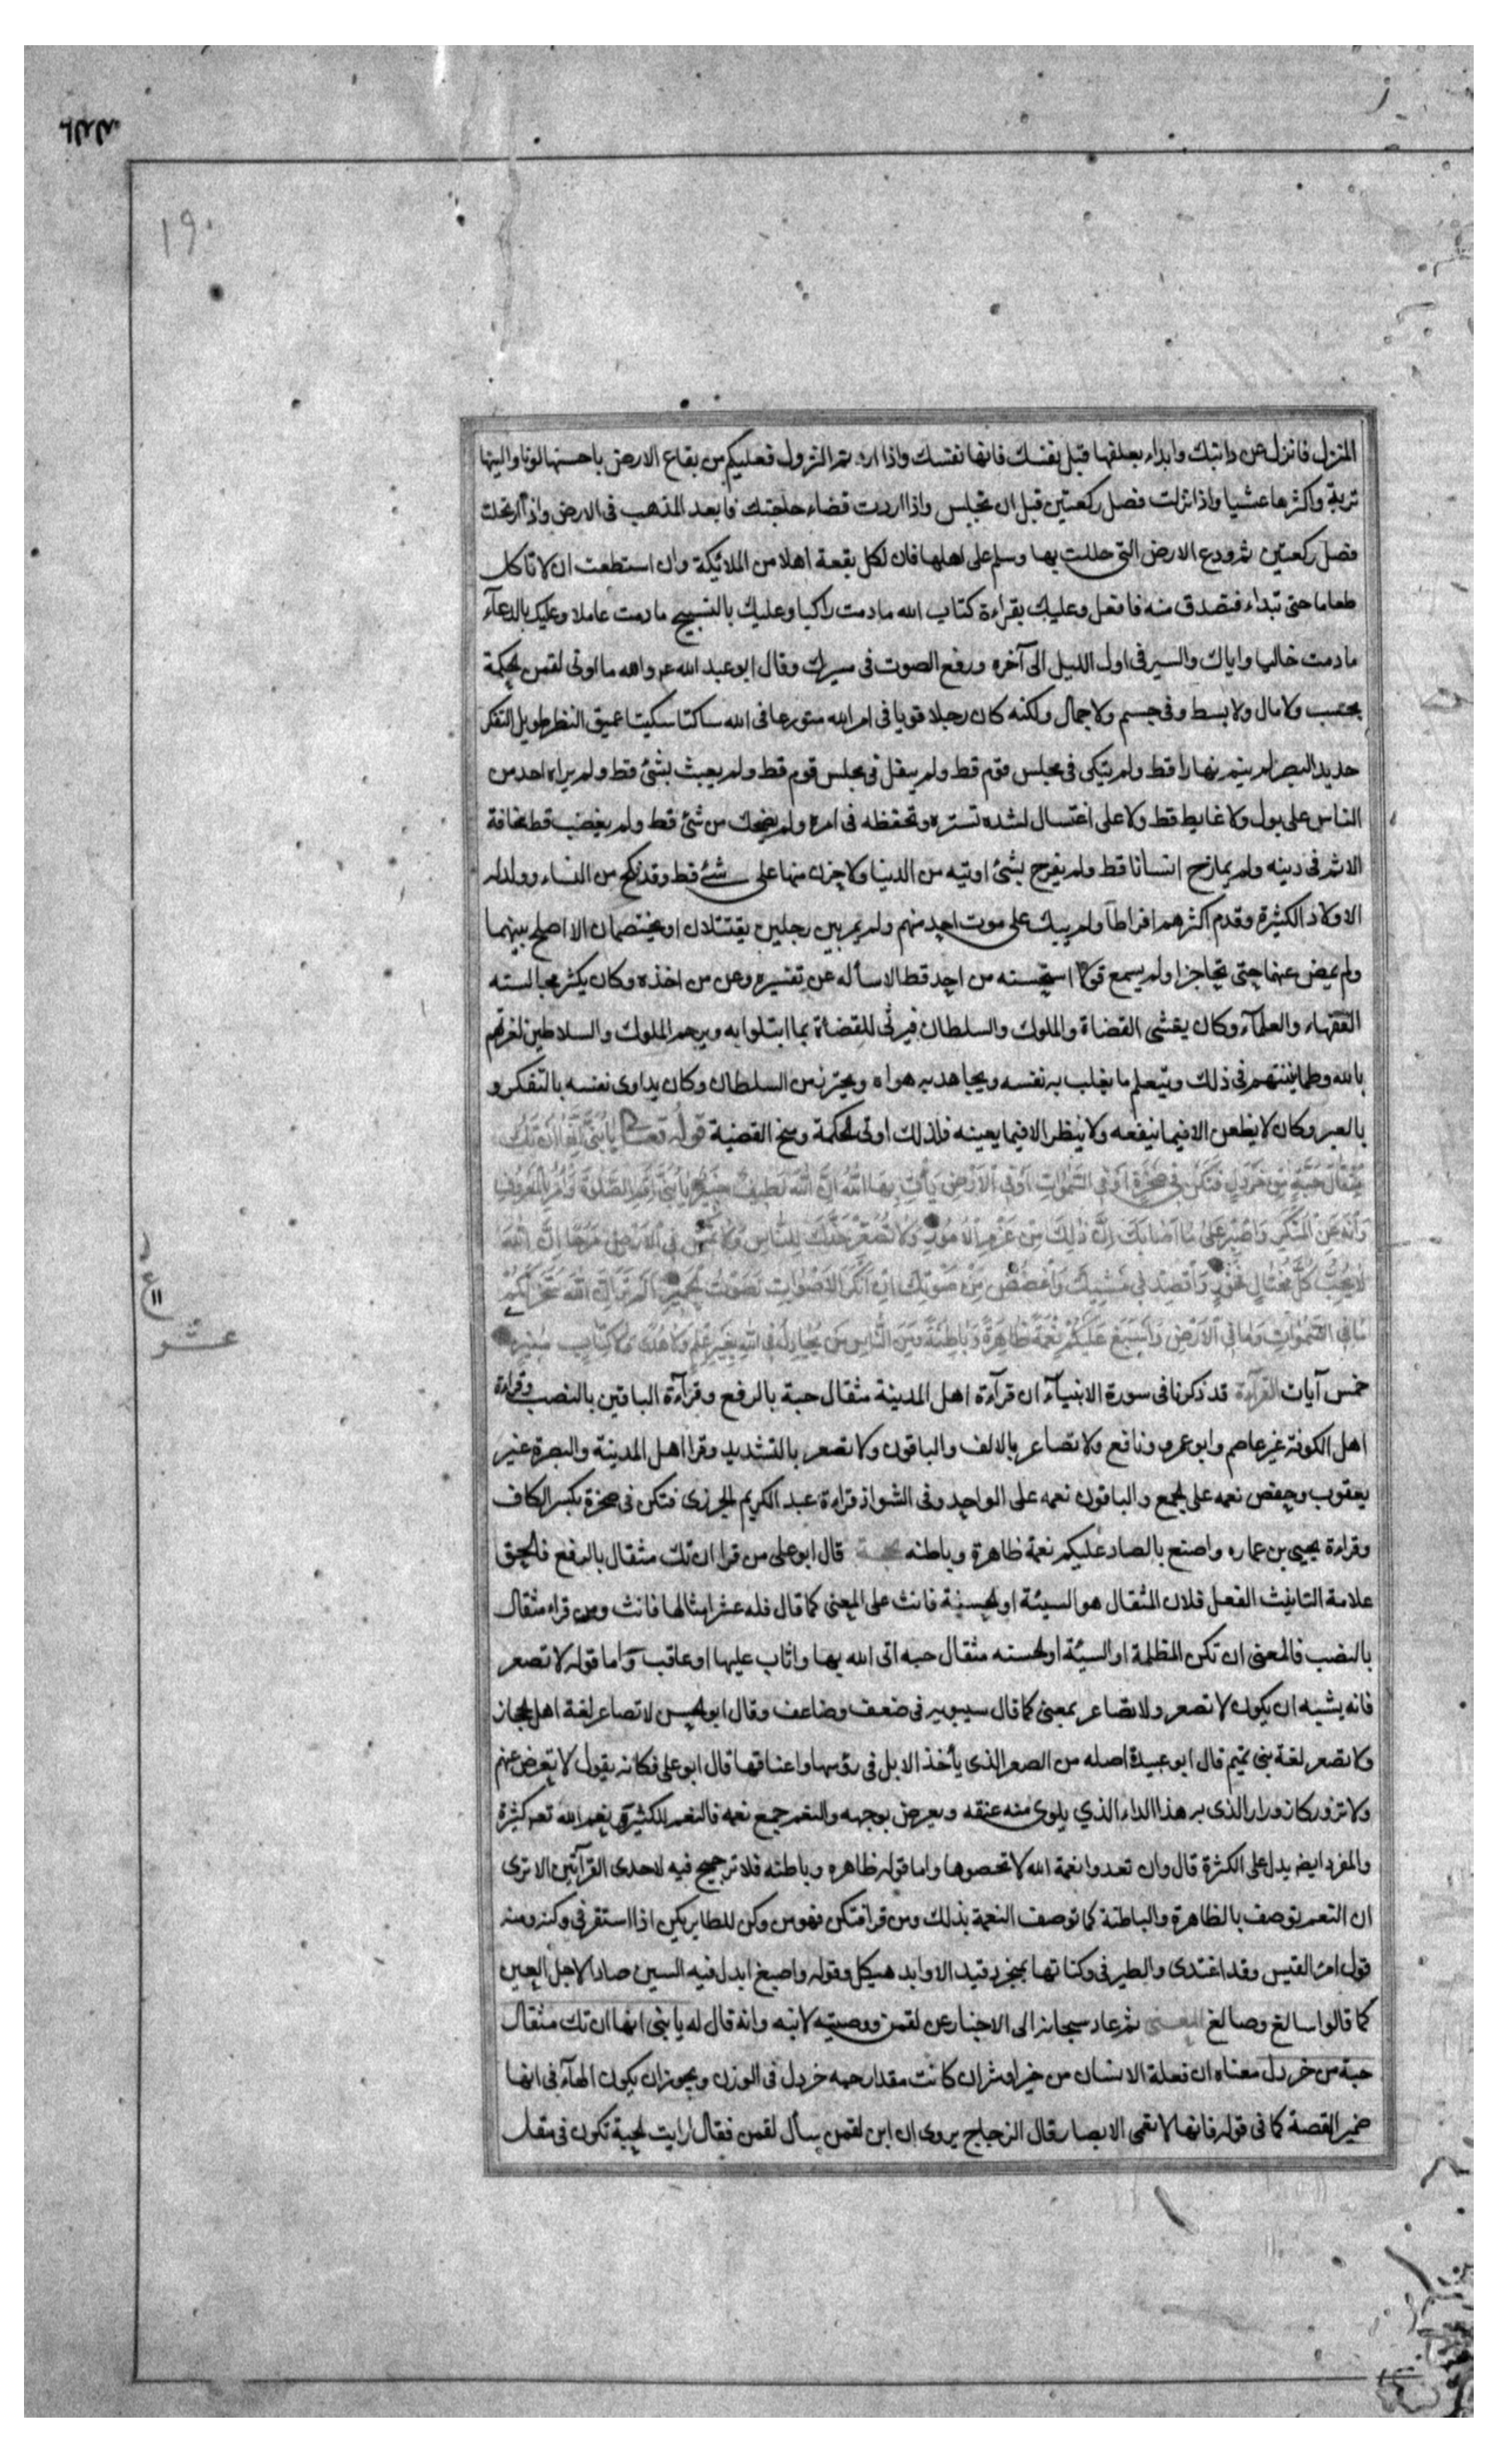 ١٩٠
المنزل فانزل عن دابتك وابداء بعلفها قبل نفسك فانها نفسك واذا اردتم النزول فعليكم من بقاع الارض باحسنها لونا والينها
تربة واكثرها عشبا واذا نزلت فصل ركعتين قبل ان تجلس واذا اردت قضاء حاجتك فابعد المذهب فى الارض واذا ارتحلت
فصل ركعتين ثم ودع الارض التى حللت بها وسلم على اهلها فان لكل بقعة اهلا من الملائكة وان استطعت ان لا تاكل
طعاما حتى تبداء فتصدق منه فافعل وعليك بقراءة كتاب الله مادمت راكبا وعليك بالتسبيح مادمت عاملا وعليك بالدعآء
مادمت خاليا واياك والسير فى اول الليل الى آخره ورفع الصوت فى سيرك وقال ابو عبد الله ع والله ما اوتى لقمن الحكمة
بحسب ولا مال ولا بسط وفى جسم ولا جمال ولكنه كان رجلا قويا فى امر الله متورعا فى الله ساكتا سكيتا عميق النظر طويل التفكر
حديد البصر لم ينم نهارا قط ولم يتكى فى مجلس قوم قط ولم يتفل فى مجلس قوم قط ولم يعبث بشئ قط ولم يراه احد من
الناس على بول ولا غايط قط ولا على اغتسال لشده تستره وتحفظه فى امره ولم يضحك من شئ قط ولم يغضب قط مخافة
الاثم فى دينه ولم يمازح انسانا قط ولم يفرح بشئ اوتيه من الدنيا ولا حزن منها على شئ قط وقد نكح من النساء وولد له
الاولاد الكثيرة وقدم اكثرهم افراطا ولم يبك على موت احد منهم ولم يمر بين رجلين يقتتلان او يختصمان الا اصلح بينهما
ولم يمض عنهما حتى تحاجزا ولم يسمع قولا استحسنه من احد قط الا سأله عن تفسيره وعن من اخذه وكان يكثر مجالسته
الفقهاء والعلمآء وكان يغشى القضاة والملوك والسلطان فيرثى للقضاة بما ابتلوا به ويرحم الملوك والسلاطين لغرتهم
بالله وطمانينتهم فى ذلك ويتعلم ما يغلب به نفسه ويجاهد به هواه ويحترز من السلطان وكان يداوى نفسه بالتفكر و
بالعبر وكان لا يظعن الا فيما ينفعه ولا ينظر الا فيما يعينه فلذلك اوتى الحكمة ومنح القضية قوله تعالى يَا بُنَيَّ إِنَّهَا إِن تَكُ
مِثْقَالَ حَبَّةٍ مِنْ خَرْدَلٍ فَتَكُنْ فِي صَخْرَةٍ أَوْ فِي السَّمٰوَاتِ أَوْ فِي الْأَرْضِ يَأْتِ بِهَا اللَّهُ إِنَّ اللَّهَ لَطِيفٌ خَبِيرٌ يَا بُنَيَّ أَقِمِ الصَّلٰوةَ وَأْمُرْ بِالْمَعْرُوفِ
وَانْهَ عَنِ الْمُنْكَرِ وَاصْبِرْ عَلَى مَا أَصَابَكَ إِنَّ ذٰلِكَ مِنْ عَزْمِ الْأُمُورِ وَلَا تُصَعِّرْ خَدَّكَ لِلنَّاسِ وَلَا تَمْشِ فِي الْأَرْضِ مَرَحًا إِنَّ اللَّهَ
لَا يُحِبُّ كُلَّ مُخْتَالٍ فَخُورٍ وَاقْصِدْ فِي مَشْيِكَ وَاغْضُضْ مِنْ صَوْتِكَ إِنَّ أَنْكَرَ الْأَصْوَاتِ لَصَوْتُ الْحَمِيرِ أَلَمْ تَرَ أَنَّ اللَّهَ سَخَّرَ لَكُمْ
مَا فِي السَّمٰوَاتِ وَمَا فِي الْأَرْضِ وَأَسْبَغَ عَلَيْكُمْ نِعْمَةً ظَاهِرَةً وَبَاطِنَةً وَمِنَ النَّاسِ مَنْ يُجَادِلُ فِي اللَّهِ بِغَيْرِ عِلْمٍ وَلَا هُدًى وَلَا كِتَابٍ مُنِيرٍ
ع
١١
عشر
خمس آيات القرآءة قد ذكرنا فى سورة الانبيآء ان قرآءة اهل المدينة مثقال حبة بالرفع وقرآءة الباقين بالنصب وقراءة
اهل الكوفة غير عاصم وابو عمرو ونافع ولا تصاعر بالالف والباقون ولا تصعر بالتشديد وقرا اهل المدينة والبصرة غير
يعقوب وحفص نعمه على الجمع والباقون نعمه على الواحد وفى الشواذ قراءة عبد الكريم الجزرى فتكن فى صخرة بكسر الكاف
وقراءة يحيى بن عماره واصبغ بالصاد عليكم نعمة ظاهرة وباطنه الحجة قال ابو على من قرا ان تك مثقال بالرفع فالحق
علامة التانيث الفعل فلان المثقال هو السيئة او الحسنة فانث على المعنى كما قال فله عشر امثالها فانث ومن قراء مثقال
بالنصب فالمعنى ان تكن المظلمة او السيئة او الحسنه مثقال حبه اتى الله بها واثاب عليها او عاقب واما قوله لا تصعر
فانه يشبه ان يكون لا تصعر ولا تصاعر بمعنى كما قال سيبويه فى ضعف وضاعف وقال ابو الحسن لا تصاعر لغة اهل الحجاز
ولا تصعر لغة بنى تميم قال ابو عبيدة اصله من الصعر الذى يأخذ الابل فى رؤسها واعناقها قال ابو على فكانه يقول لا تعرض عنهم
ولا تزور كازورار الذى به هذا الداء الذي يلوى منه عنقه ويعرض بوجهه والنعم جمع نعمه فالنعم الكثيرة ونعم الله تعم كثيرة
والمفرد ايضا يدل على الكثرة قال وان تعدوا نعمة الله لا تحصوها واما قوله ظاهره وباطنه فلا ترجيح فيه لاحدى القرآتين الا ترى
ان النعم توصف بالظاهرة والباطنة كما توصف النعمة بذلك ومن قرا فتكن فهو من وكن للطاير يكن اذا استقر فى وكنه ومنه
قول امرئ القيس وقد اغتدى والطير فى وكناتها بمنجرد قيد الاوابد هيكل وقوله واصبغ ابدل فيه السين صادا لاجل العين
كما قالوا سالغ وصالغ المعنى ثم عاد سبحانه الى الاخبار عن لقمن ووصيته لابنه وانه قال له يا بنى انها ان تك مثقال
حبة من خردل معناه ان فعلة الانسان من خير او شر ان كانت مقدار حبه خردل فى الوزن ويجوز ان يكون الهآء فى انها
ضمير القصة كما فى قوله فانها لا تعمى الابصار قال الزجاج يروى ان ابن لقمن سأل لقمن فقال ارايت الحبة تكون فى مقل